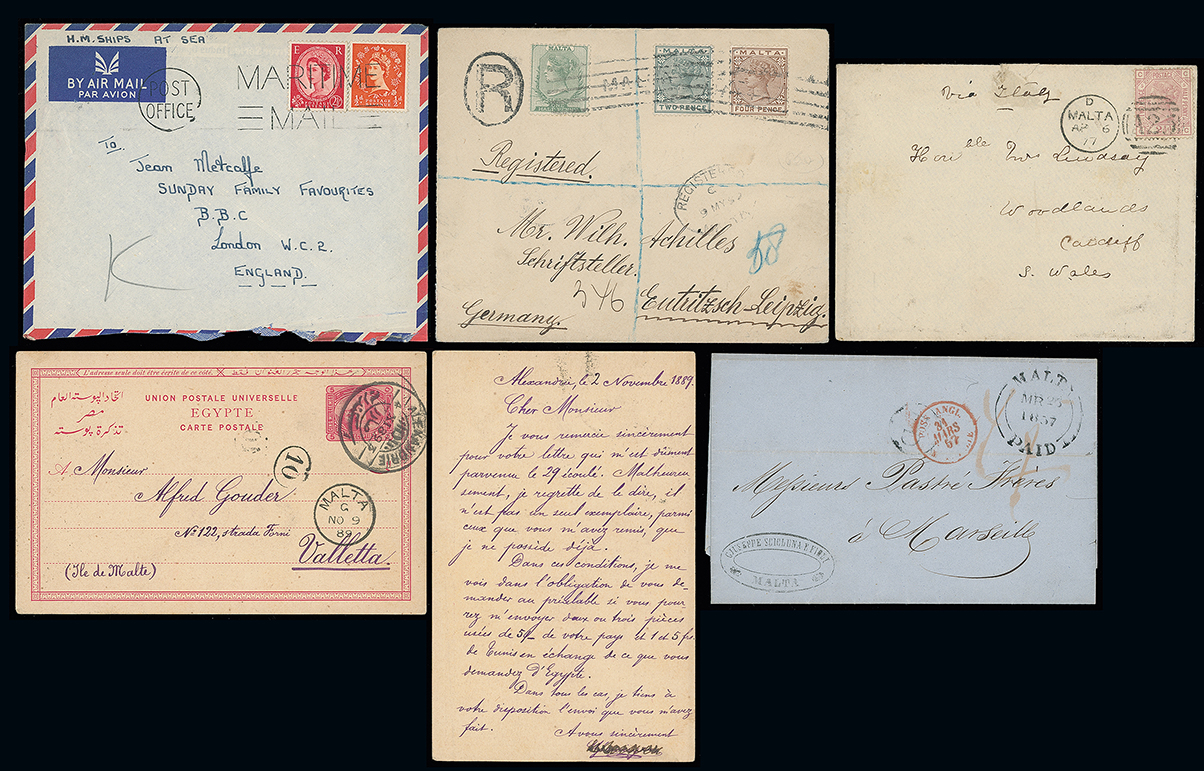 H.M. SHIPS AT SEA
BY AIR MAIL
PAR AVION
POST
OFFICE
MARITIME
MAIL
E R
½d
To
Jean Metcalfe
SUNDAY FAMILY FAVOURITES
B.B.C
London W.C.2.
ENGLAND.
K
R
MALTA
MALTA
TWO PENCE
MALTA
FOUR PENCE
Registered.
REGISTERED
Mr. Wilh. Achilles
Schriftsteller.
346
Eutritzsch-Leipzig.
Germany.
via Italy
D
MALTA
AP 6
77
Honble Mrs Lindsay
Woodlands
Cardiff
S. Wales
L'adresse seule doit être écrite de ce côté.
اتحاد البوسته العام
مصر
تذكرة بوسته
UNION POSTALE UNIVERSELLE
EGYPTE
CARTE POSTALE
10
MALTA
G
NO 9
89
A Monsieur
Alfred Gouder
No 122, strada Forni
Valletta.
(Ile de Malte)
Alexandrie, le 2 Novembre 1889.
Cher Monsieur
Je vous remercie sincèrement
pour votre lettre qui m'est dûment
parvenue le 29 écoulé. Malheureu-
sement, je regrette de le dire, il
n'est pas un seul exemplaire, parmi
ceux que vous m'avez remis, que
je ne possède déjà.
Dans ces conditions, je me
vois dans l'obligation de vous de-
mander au préalable si vous pour
rez m'envoyer deux ou trois pièces
usées de 5/- de votre pays et 1 et 5 fs.
de Tunis en échange de ce que vous
demandez d'Egypte.
Dans tous les cas, je tiens à
votre disposition l'envoi que vous m'avez
fait.
A vous sincèrement
MALTA
MR 28
1857
PAID
Messieurs Pastré Frères
à Marseille
GIUSEPPE SCICLUNA E FIGLI
MALTA